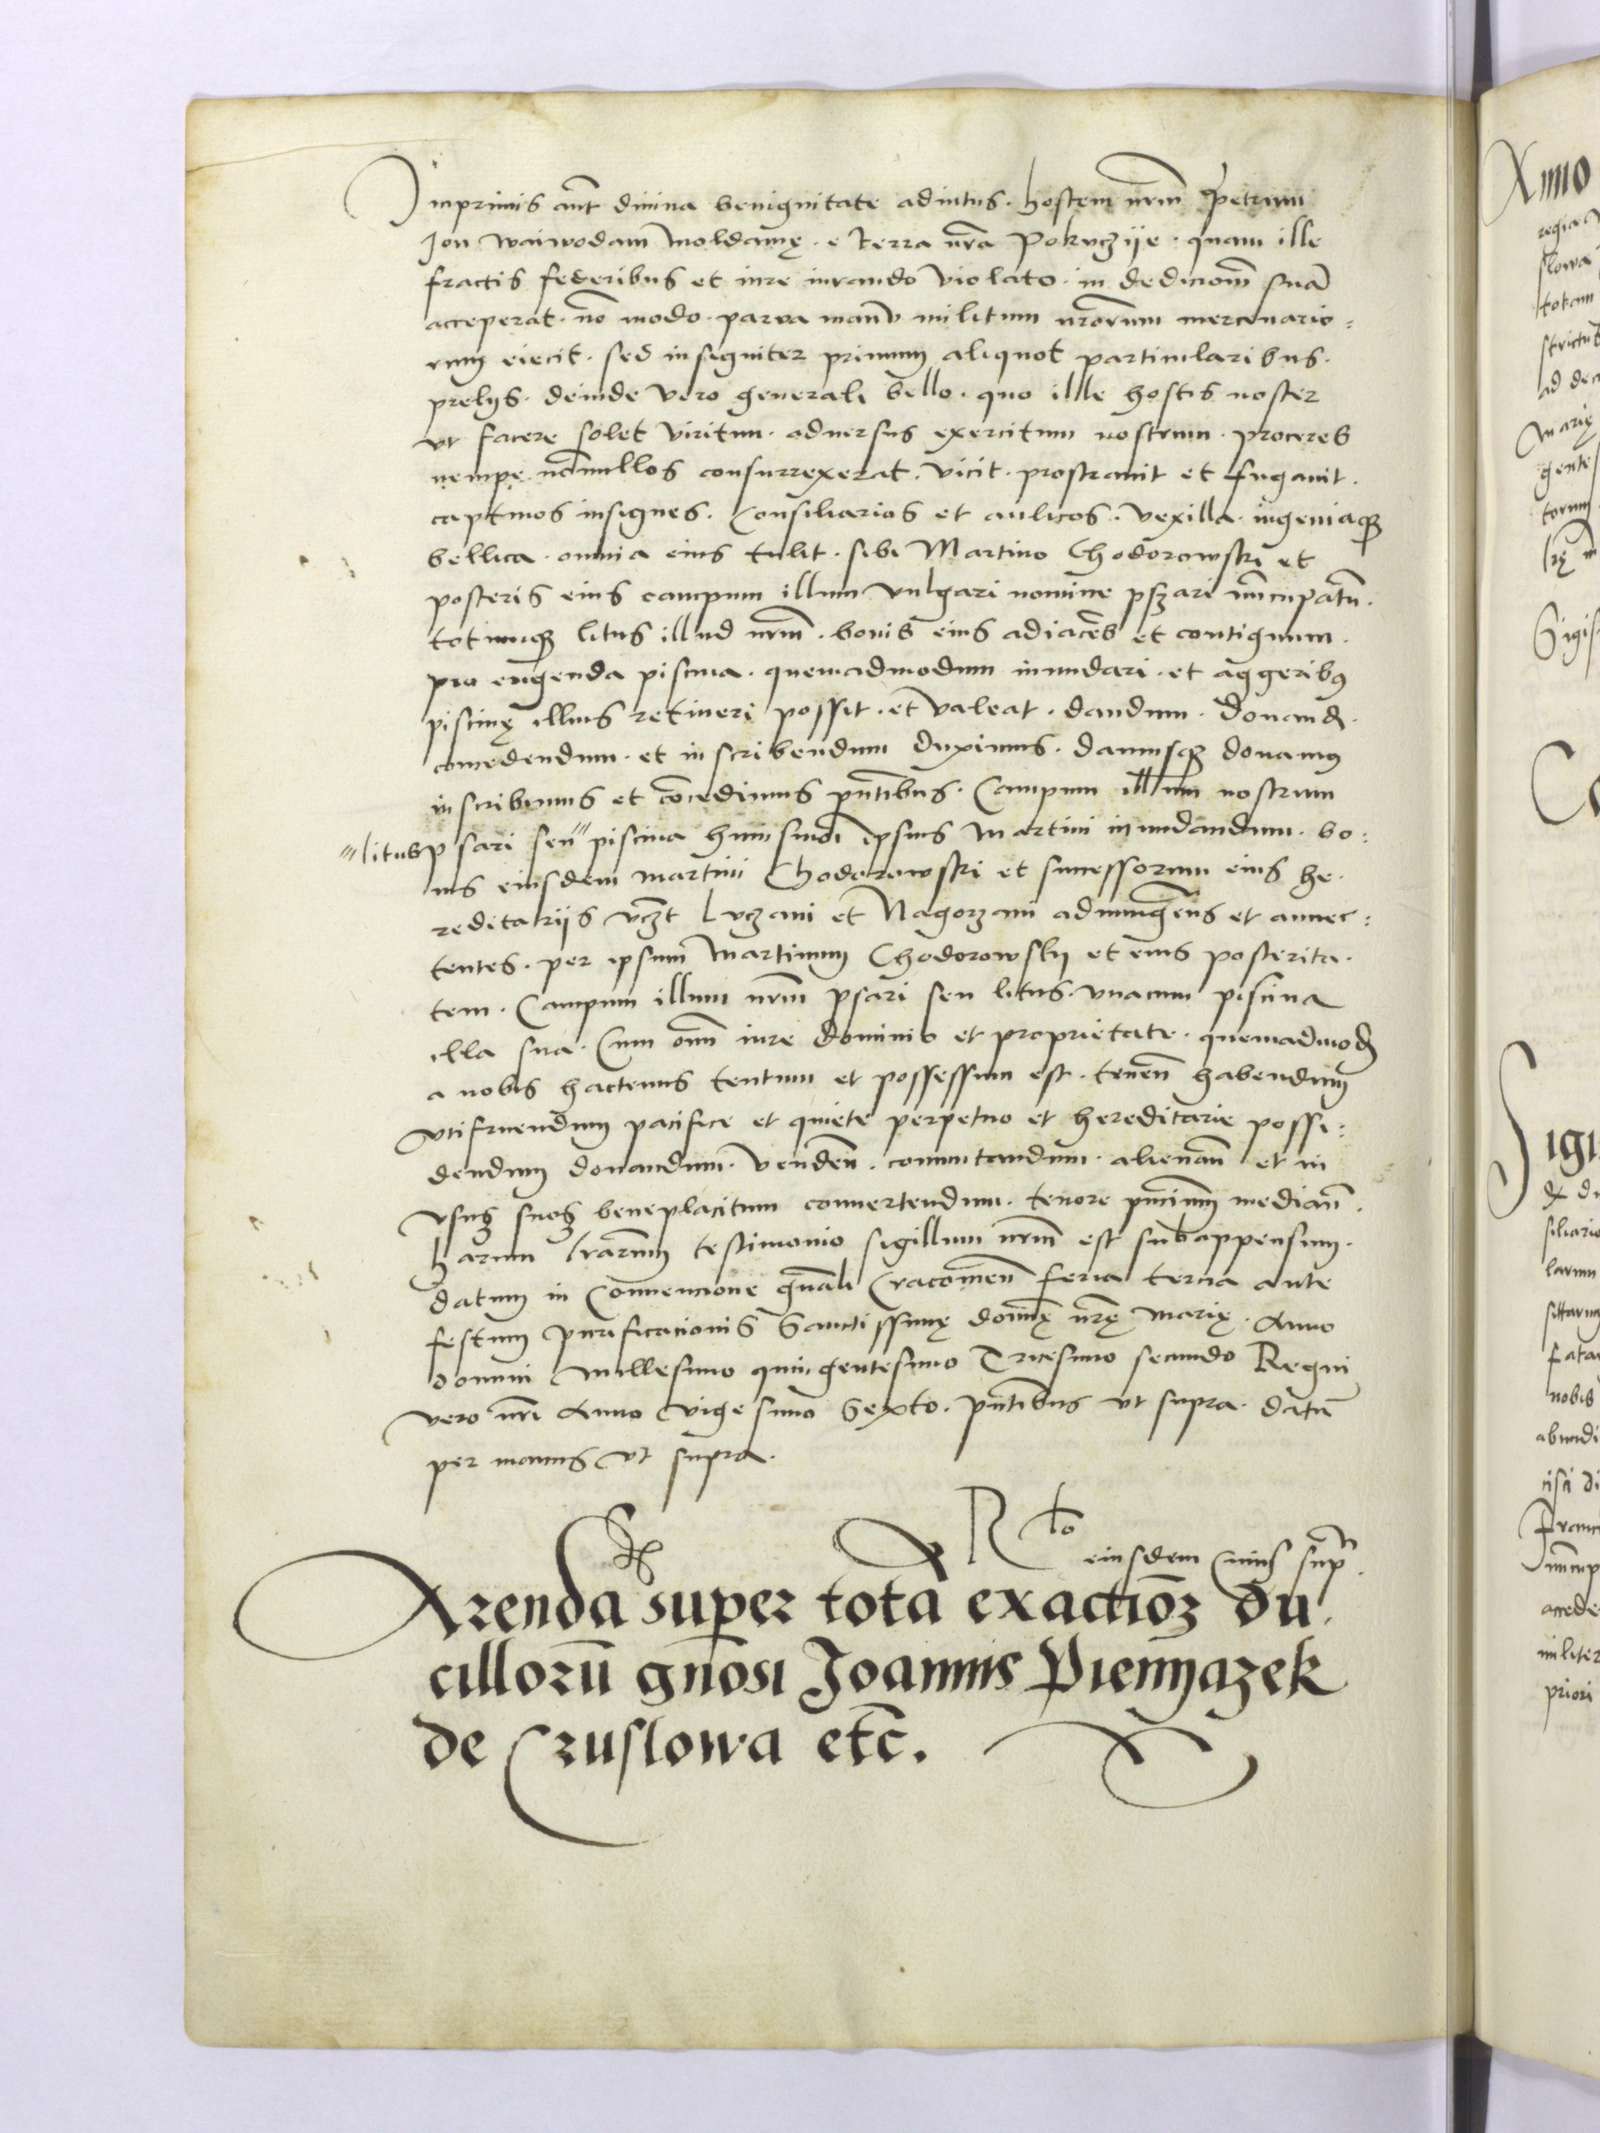 Inprimis aut̄ diuina benignitate adiutus · hostem nr̄m Petrum
Jon waiwodam Moldauię · e terra nr̄a Pokuczije · quam ille
fractis federibus et iure iurando violato · in dedicioem̄ suā
acceperat · nō modo · parua manu militum nr̄orum mercenario=
rum eiecit · sed insigniter primum aliquot particularibus ·
prelijs · deinde vero generali bello · quo illle hostis noster
vt facere solet viritim · aduersus exercitum nostrum · proceres
nempe nōnullos consurrexerat · vicit · prostrauit et fugauit ·
captiuos insignes · Consiliarios et aulicos · vexilla · ingeniaqꝫ
bellica · omnia eius tulit · sibi Martino Chodorowski et
posteris eius campum illum vulgari nomine pszari nūcupatū ·
totumqꝫ litus illud nr̄m · bonis eius adiacēs et contiguum ·
pro erigenda piscina · quemadmodum inundari · et aggeribus
piscinę illius retineri possit · et valeat · dandum · donand̄ ·
concedendum · et inscribendum duximus · damusqꝫ donamus
inscribimus et cōcedimus pn̄tibus · Campum illum nostrum
litus psari seu piscina huiusmodi ipsius Martini inundandum · bo:
nis eiusdem martini Chodorowski et successorum eius he·
reditarijs vcꝫt Luczani et Nagorzani adiungens et annec:
tentes · per ipsum Martinum Chodorowskij et eius posterita·
tem · Campum illum nr̄m psari seu litus · vnacum piscina
illa sua · Cum om̄i iure dominio et proprietate · quemadmod̄
a nobis hactenus tentum et possessum est · tenen̄ habendum
vtifruendum pacifice et quiete perpetuo et hereditarie possi:
dendum donandum · venden̄ · commutandum · alienan̄ et in
vsus suos beneplacitum conuertendum · tenore pn̄cium median̄ ·
harum lr̄arum testimonio sigillum nr̄m est subappensum ·
datum in Conuencione gn̄ali Cracouien̄ feria tercia ante
festum purificacionis Sanctissimę dominę nr̄ę Marię · Anno
domini Millesimo quingentesimo Tricesimo secundo Regni
vero nr̄i Anno vigesimo Sexto · pn̄tibus vt supra · datū
per manus vt supra ·
R̄lo
eiusdem cuius supr̄ ·
Arenda super totā exactiōꝫ du·
cillorū gn̄osi Joannis Pienyazek
de Cruslowa etc̄ .